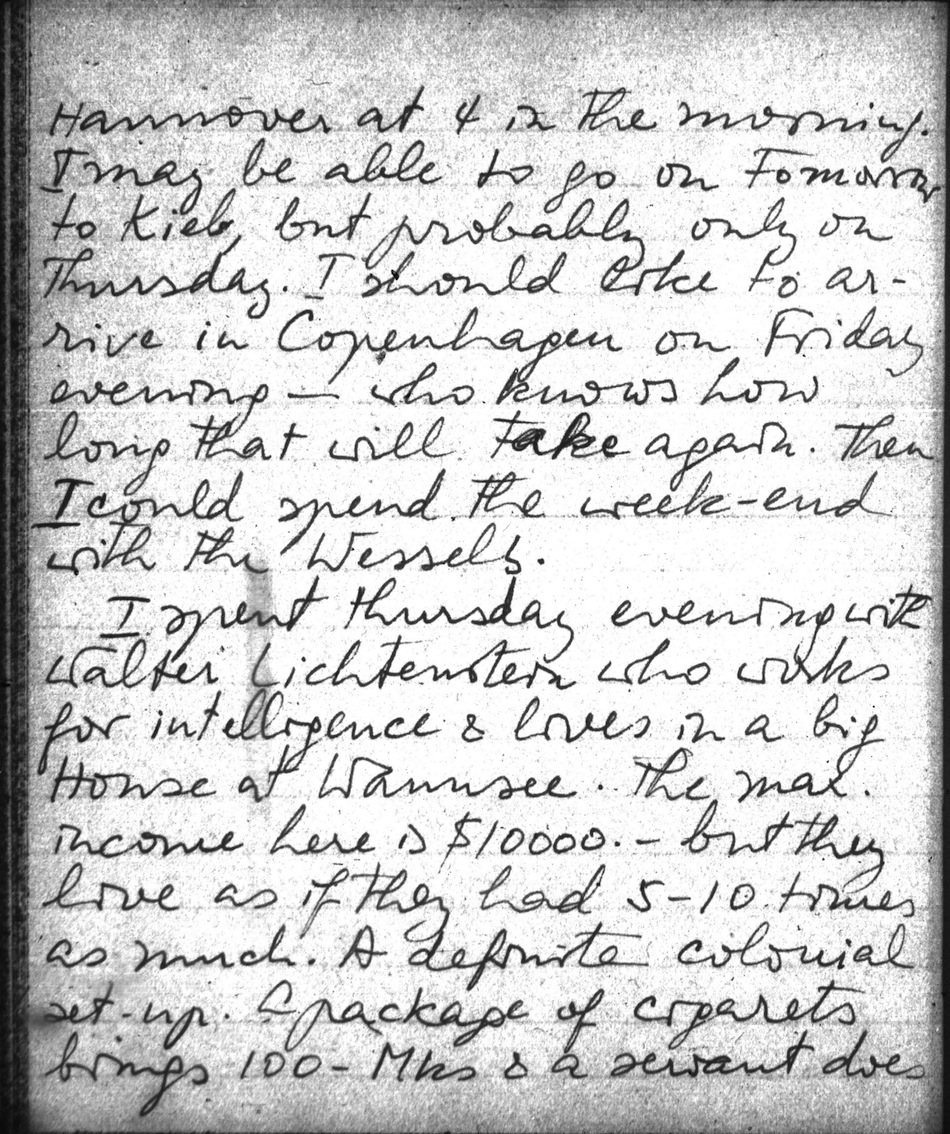 Hannover at 4 in the morning.
I may be able to go on Tomorrow
to Kiel, but probably only on
Thursday. I should like to ar-
rive in Copenhagen on Friday
evening — who knows how
long that will take again. Then
I could spend the week-end
with the Wessels.
I spent thursday evening with
Walter Lichtenstein who works
for intelligence & lives in a big
House at Wannsee. The max.
income here is $10000.- but they
live as if they had 5-10 times
as much. A definite colonial
set-up. A package of cigarets
brings 100- Mks & a servant does